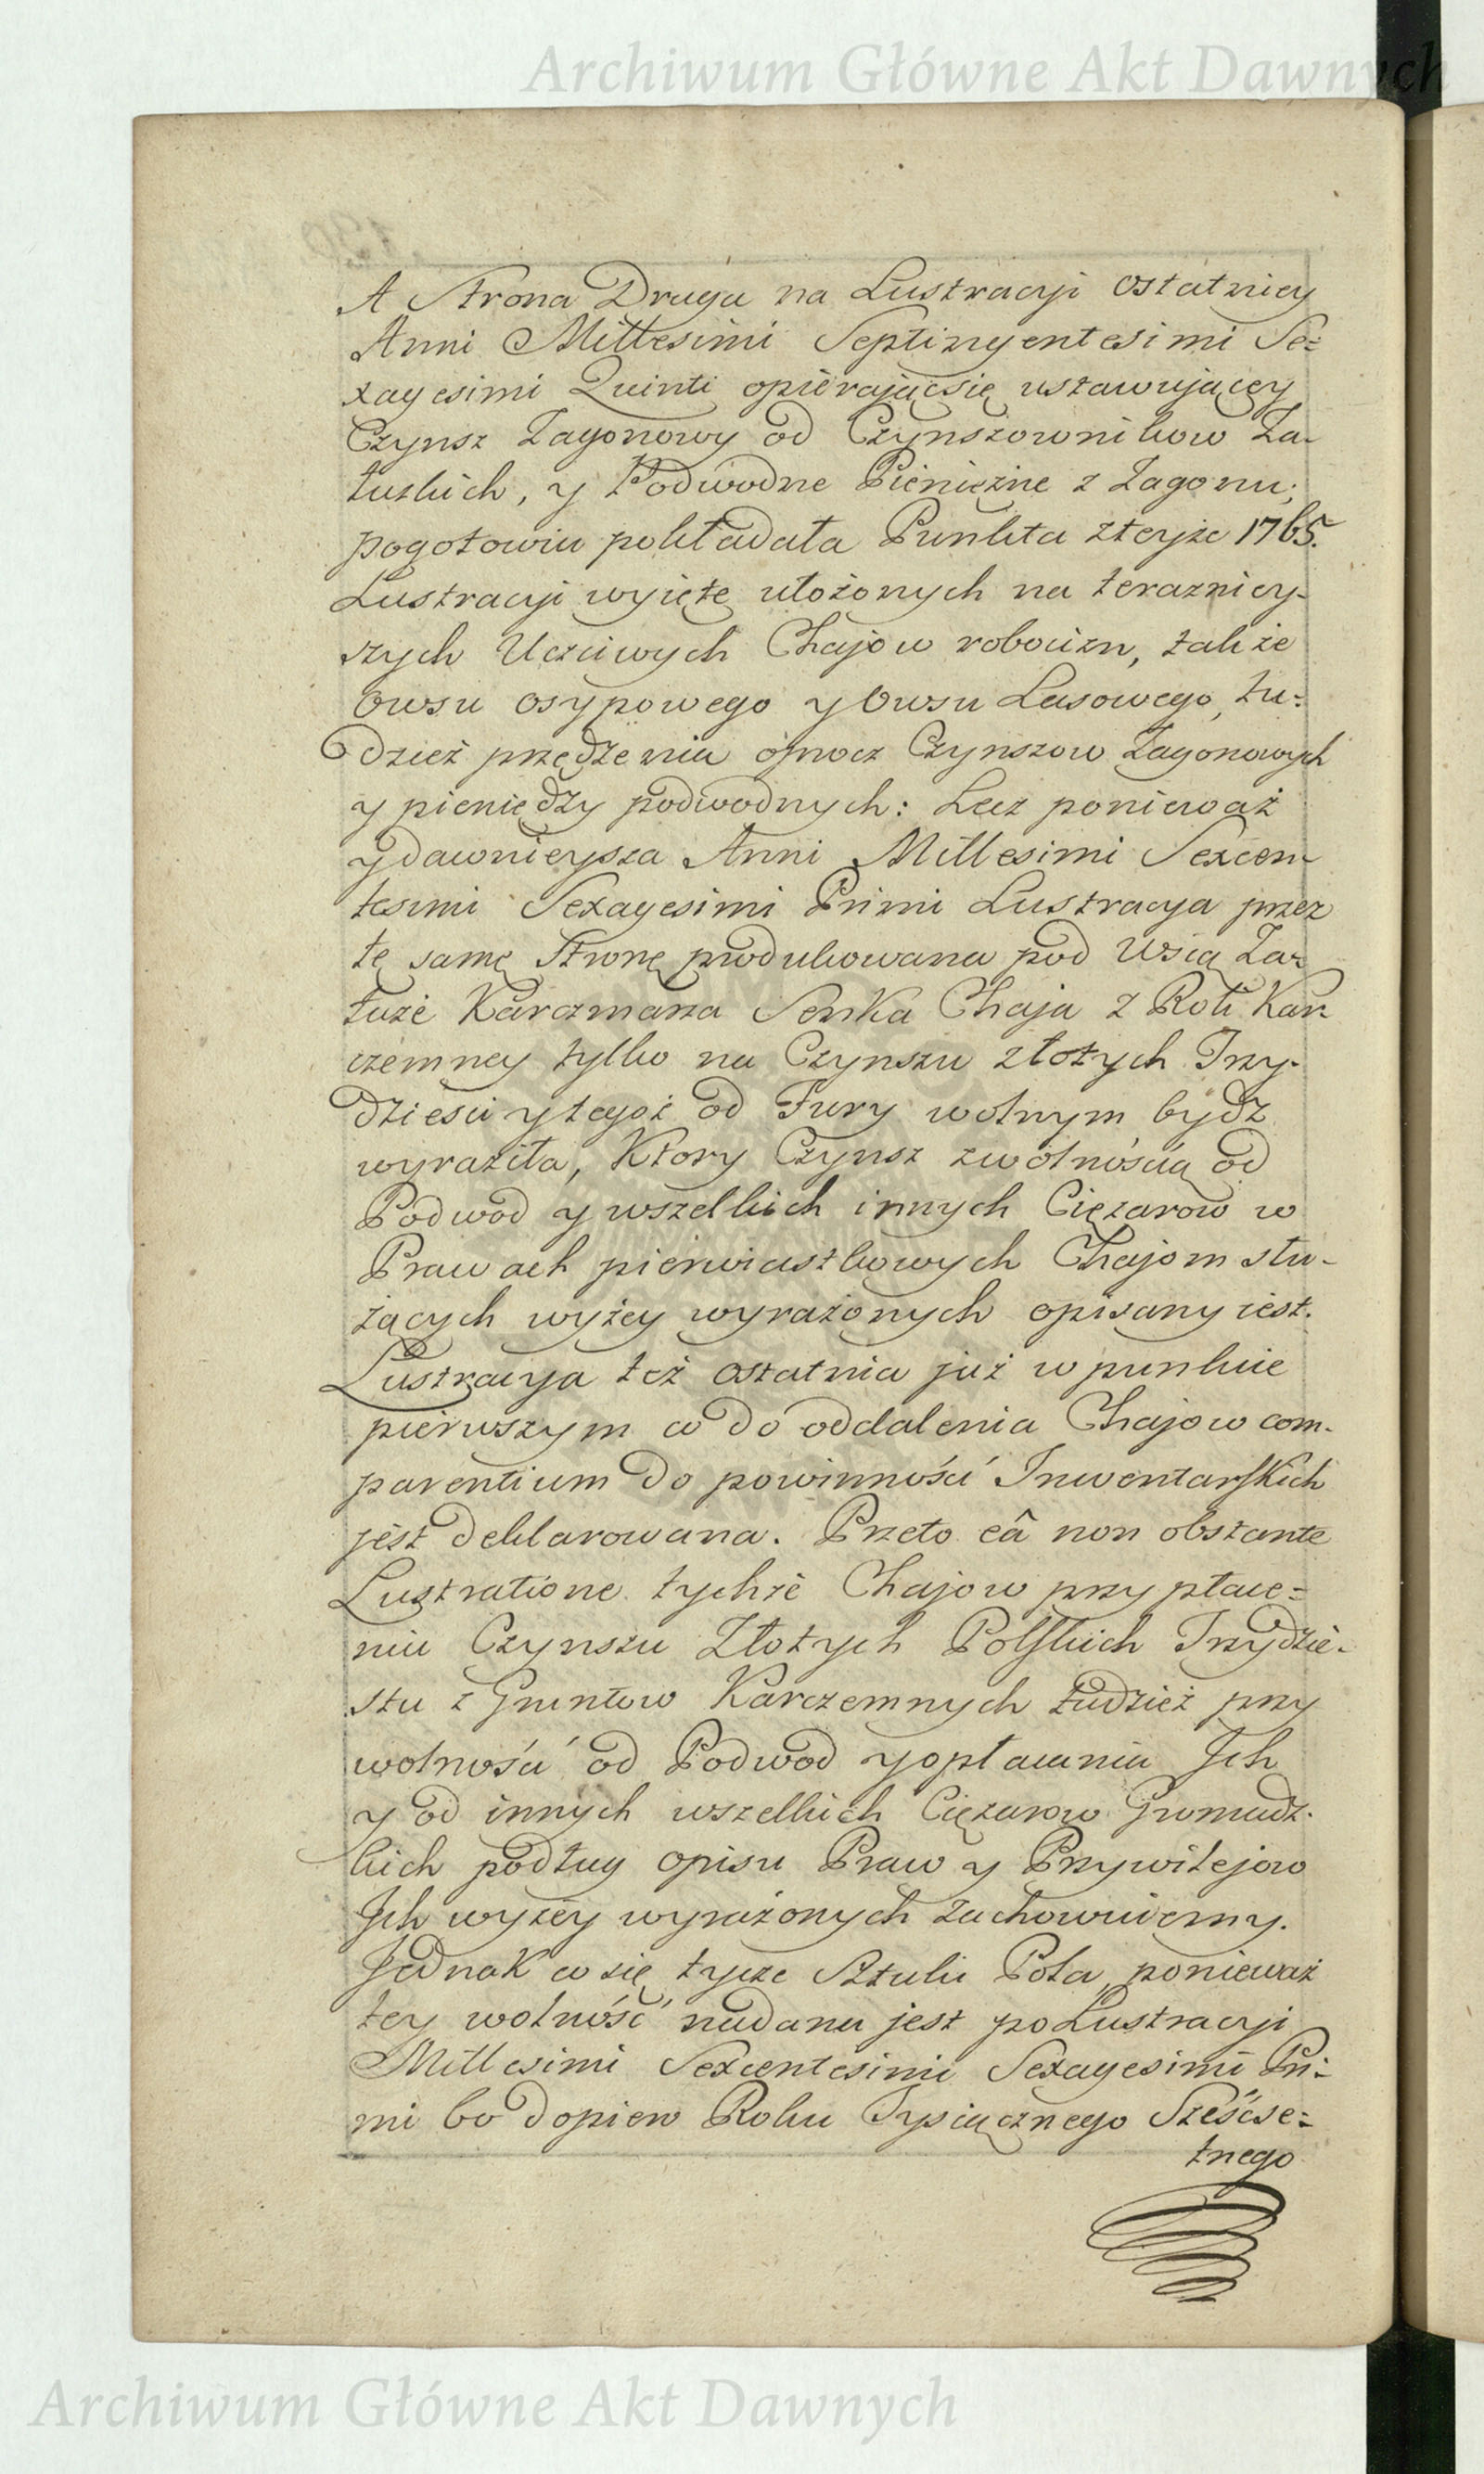 Archiwum Główne Akt Dawnych
A Strona Druga na Lustracyi ostatniey
Anni Millesimi Septingentesimi Se=
xagesimi Quinti opieraiącsię ustawuiącey
Czynsz Zagonowy od Czynszownikow Za-
łuzkich, y Podwodne Pieniężne z Zagonu;
pogotowiu pokładała Punkta zteyże 1765.
Lustracyi wyięte ułożonych na terazniey-
szych Uczciwych Chajow robocizn, także
Owsu osypowego y Owsu Lasowego, tu-
dzież przędzenia oprocz Czynszow Zagonowych
y pieniędzy podwodnych: Lecz ponieważ
y dawnieysza Anni Millesimi Sexcen-
tesimi Sexagesimi Primi Lustracya przez
tę samę Stronę produkowana pod Wsią Za-
łuże Karczmarza Senka Chaja z Roli Kar-
czemney tylko na Czynszu złotych Trzy-
dziesci y tegoż od Fury wolnym bydz
wyraziła, Ktory Czynsz zwolnością od
Podwod y wszelkich innych Ciężarow w
Prawach pierwiastkowych Chajom słu-
żących wyżey wyrażonych opisany iest.
Lustracya też ostatnia już w punkcie
pierwszym co do oddalenia Chajow com-
parentium do powinności Inwentarskich
jest deklarowana. Przeto eâ non obstante
Lustratione tychże Chajow przy płace=
niu Czynszu Złotych Polskich Trzydzie-
stu z Gruntow Karczemnych tudzież przy
wolności od Podwod y opłacania Ich
y od innych wszelkich Ciężarow Gromadz-
kich podług opisu Praw y Przywilejow
Ich wyżey wyrażonych zachowuiemy.
Jednak co się tycze Sztuki Pola, ponieważ
tey wolność nadana jest po Lustracyi
Millesimi Sexcentesimi Sexagesimi Pri-
mi bo dopiero Roku Tysiącznego Sześcse=
tnego
Archiwum Główne Akt Dawnych